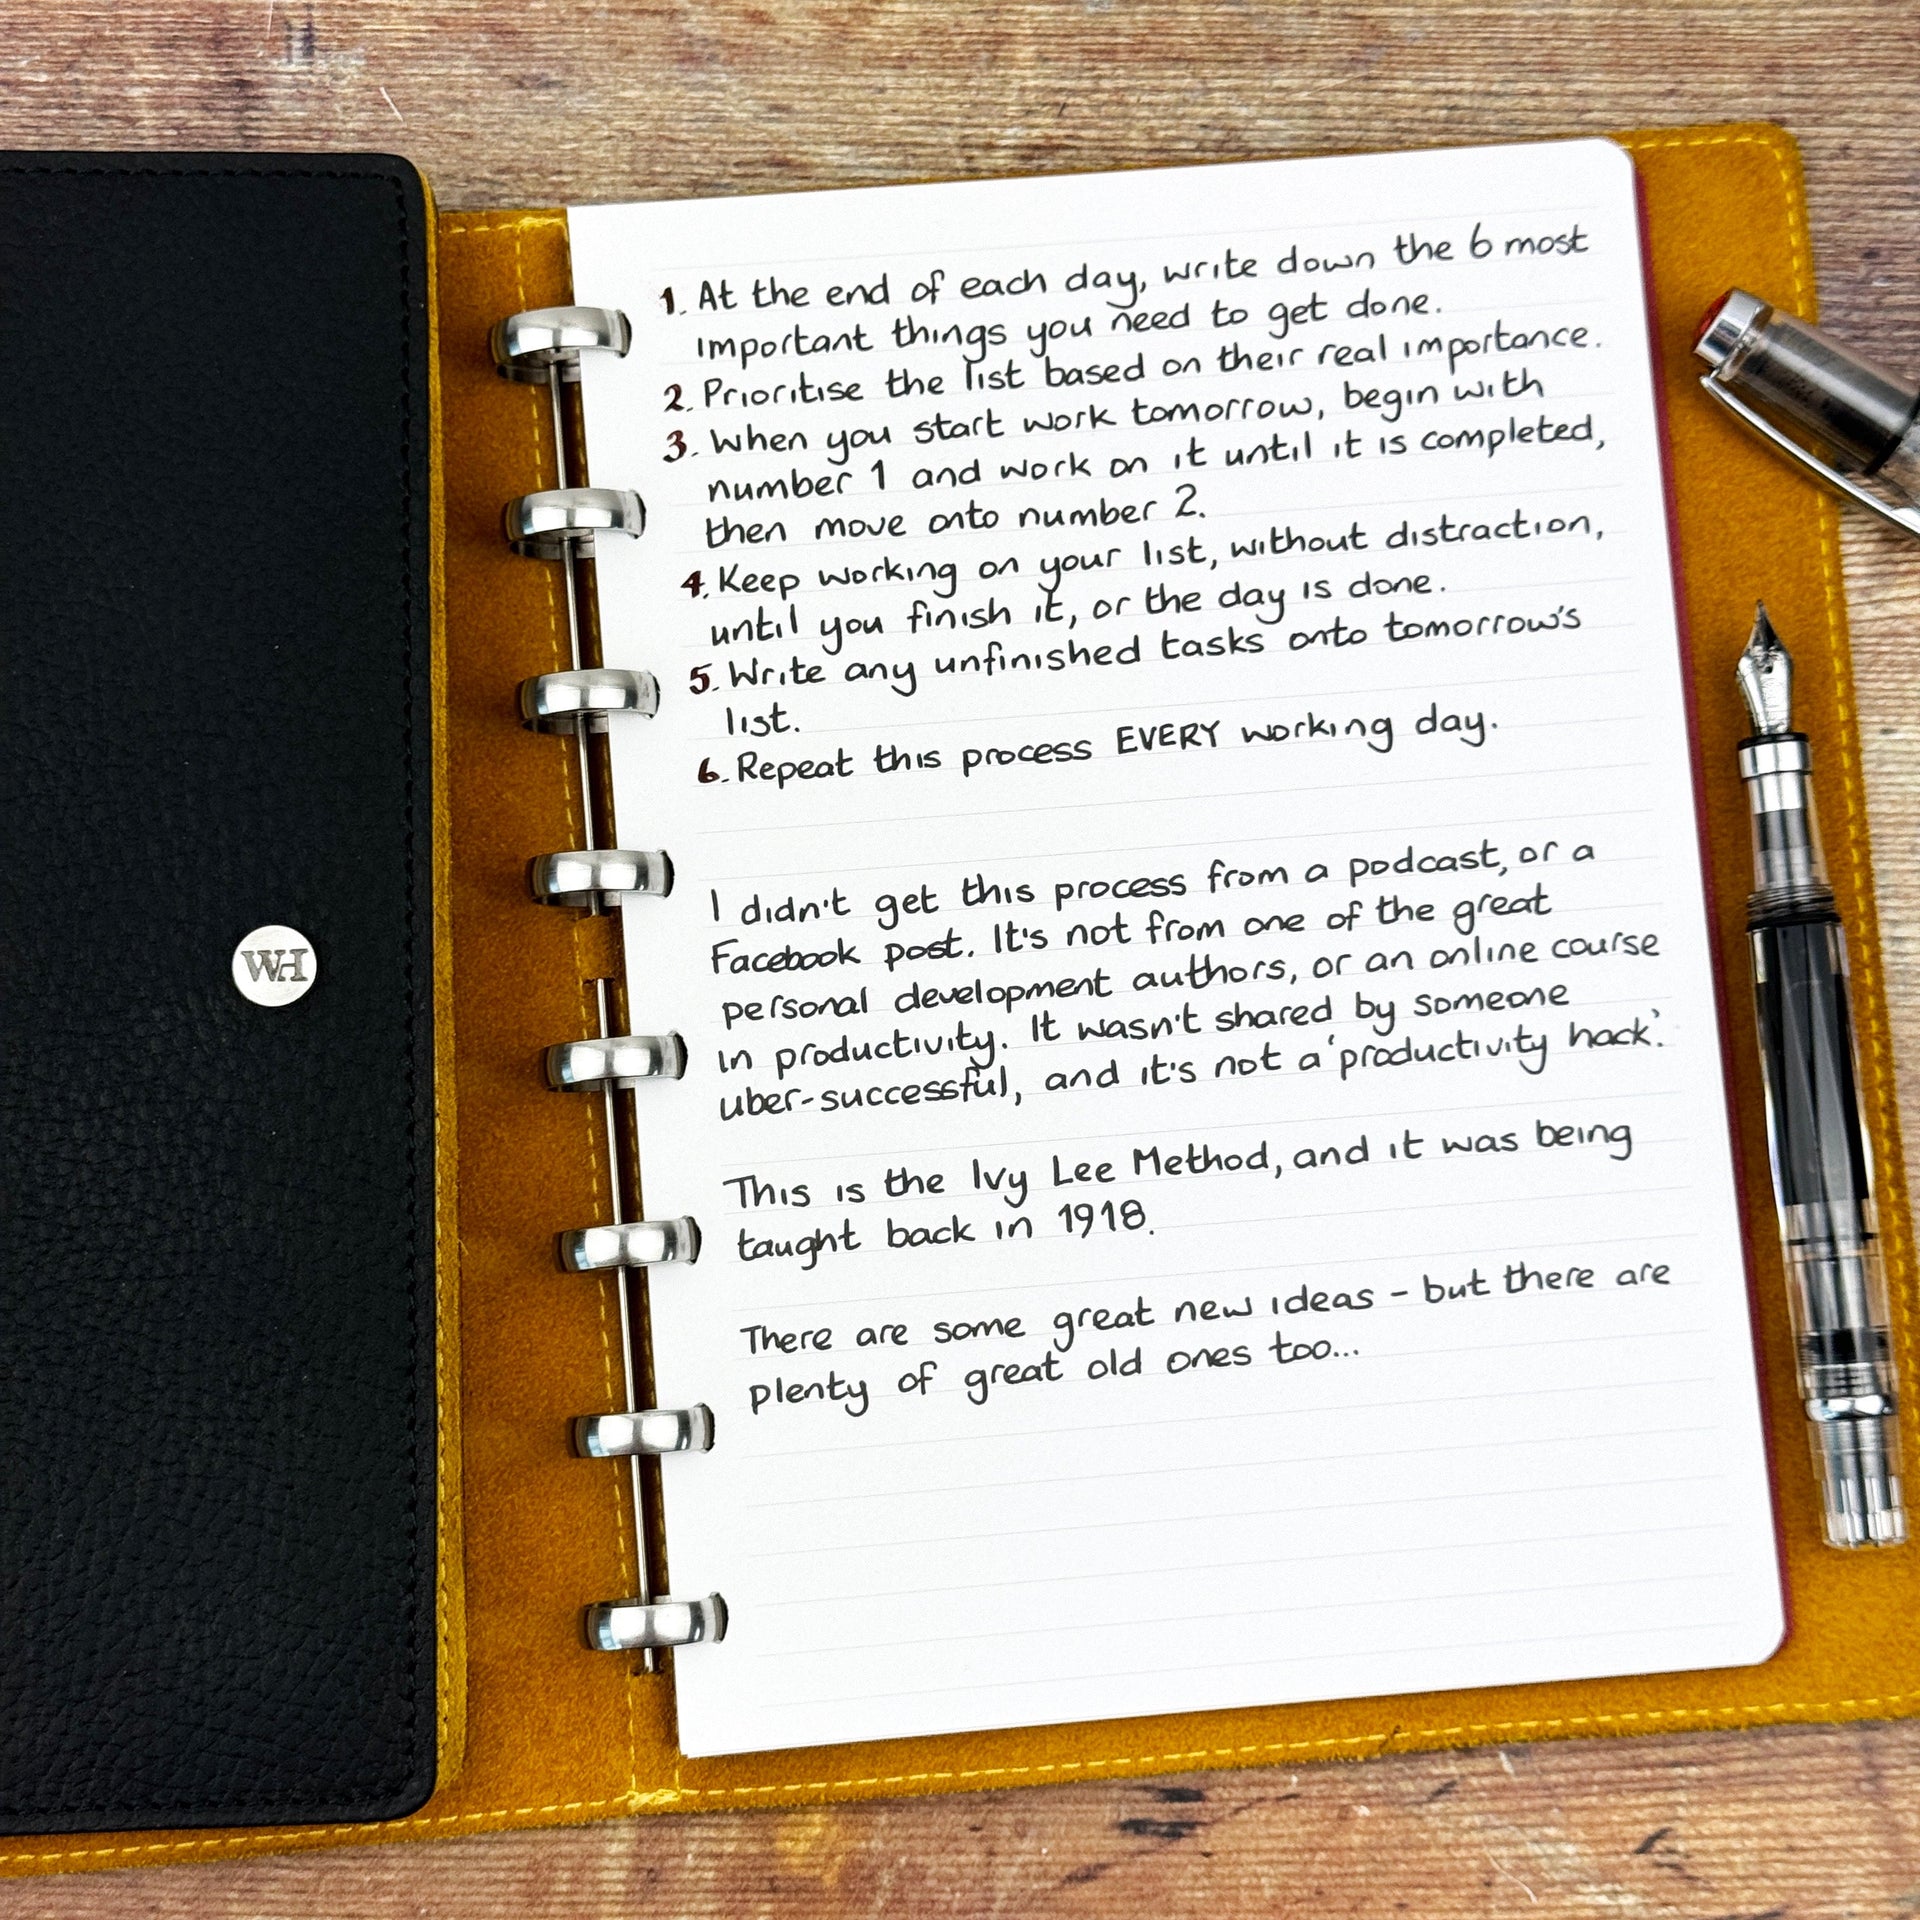 WH
1. At the end of each day, write down the 6 most
important things you need to get done.
2. Prioritise the list based on their real importance.
3. When you start work tomorrow, begin with
number 1 and work on it until it is completed,
then move onto number 2.
4. Keep working on your list, without distraction,
until you finish it, or the day is done.
5. Write any unfinished tasks onto tomorrow's
list.
6. Repeat this process EVERY working day.
I didn't get this process from a podcast, or a
Facebook post. It's not from one of the great
personal development authors, or an online course
in productivity. It wasn't shared by someone
uber-successful, and it's not a 'productivity hack'.
This is the Ivy Lee Method, and it was being
taught back in 1918.
There are some great new ideas - but there are
plenty of great old ones too...